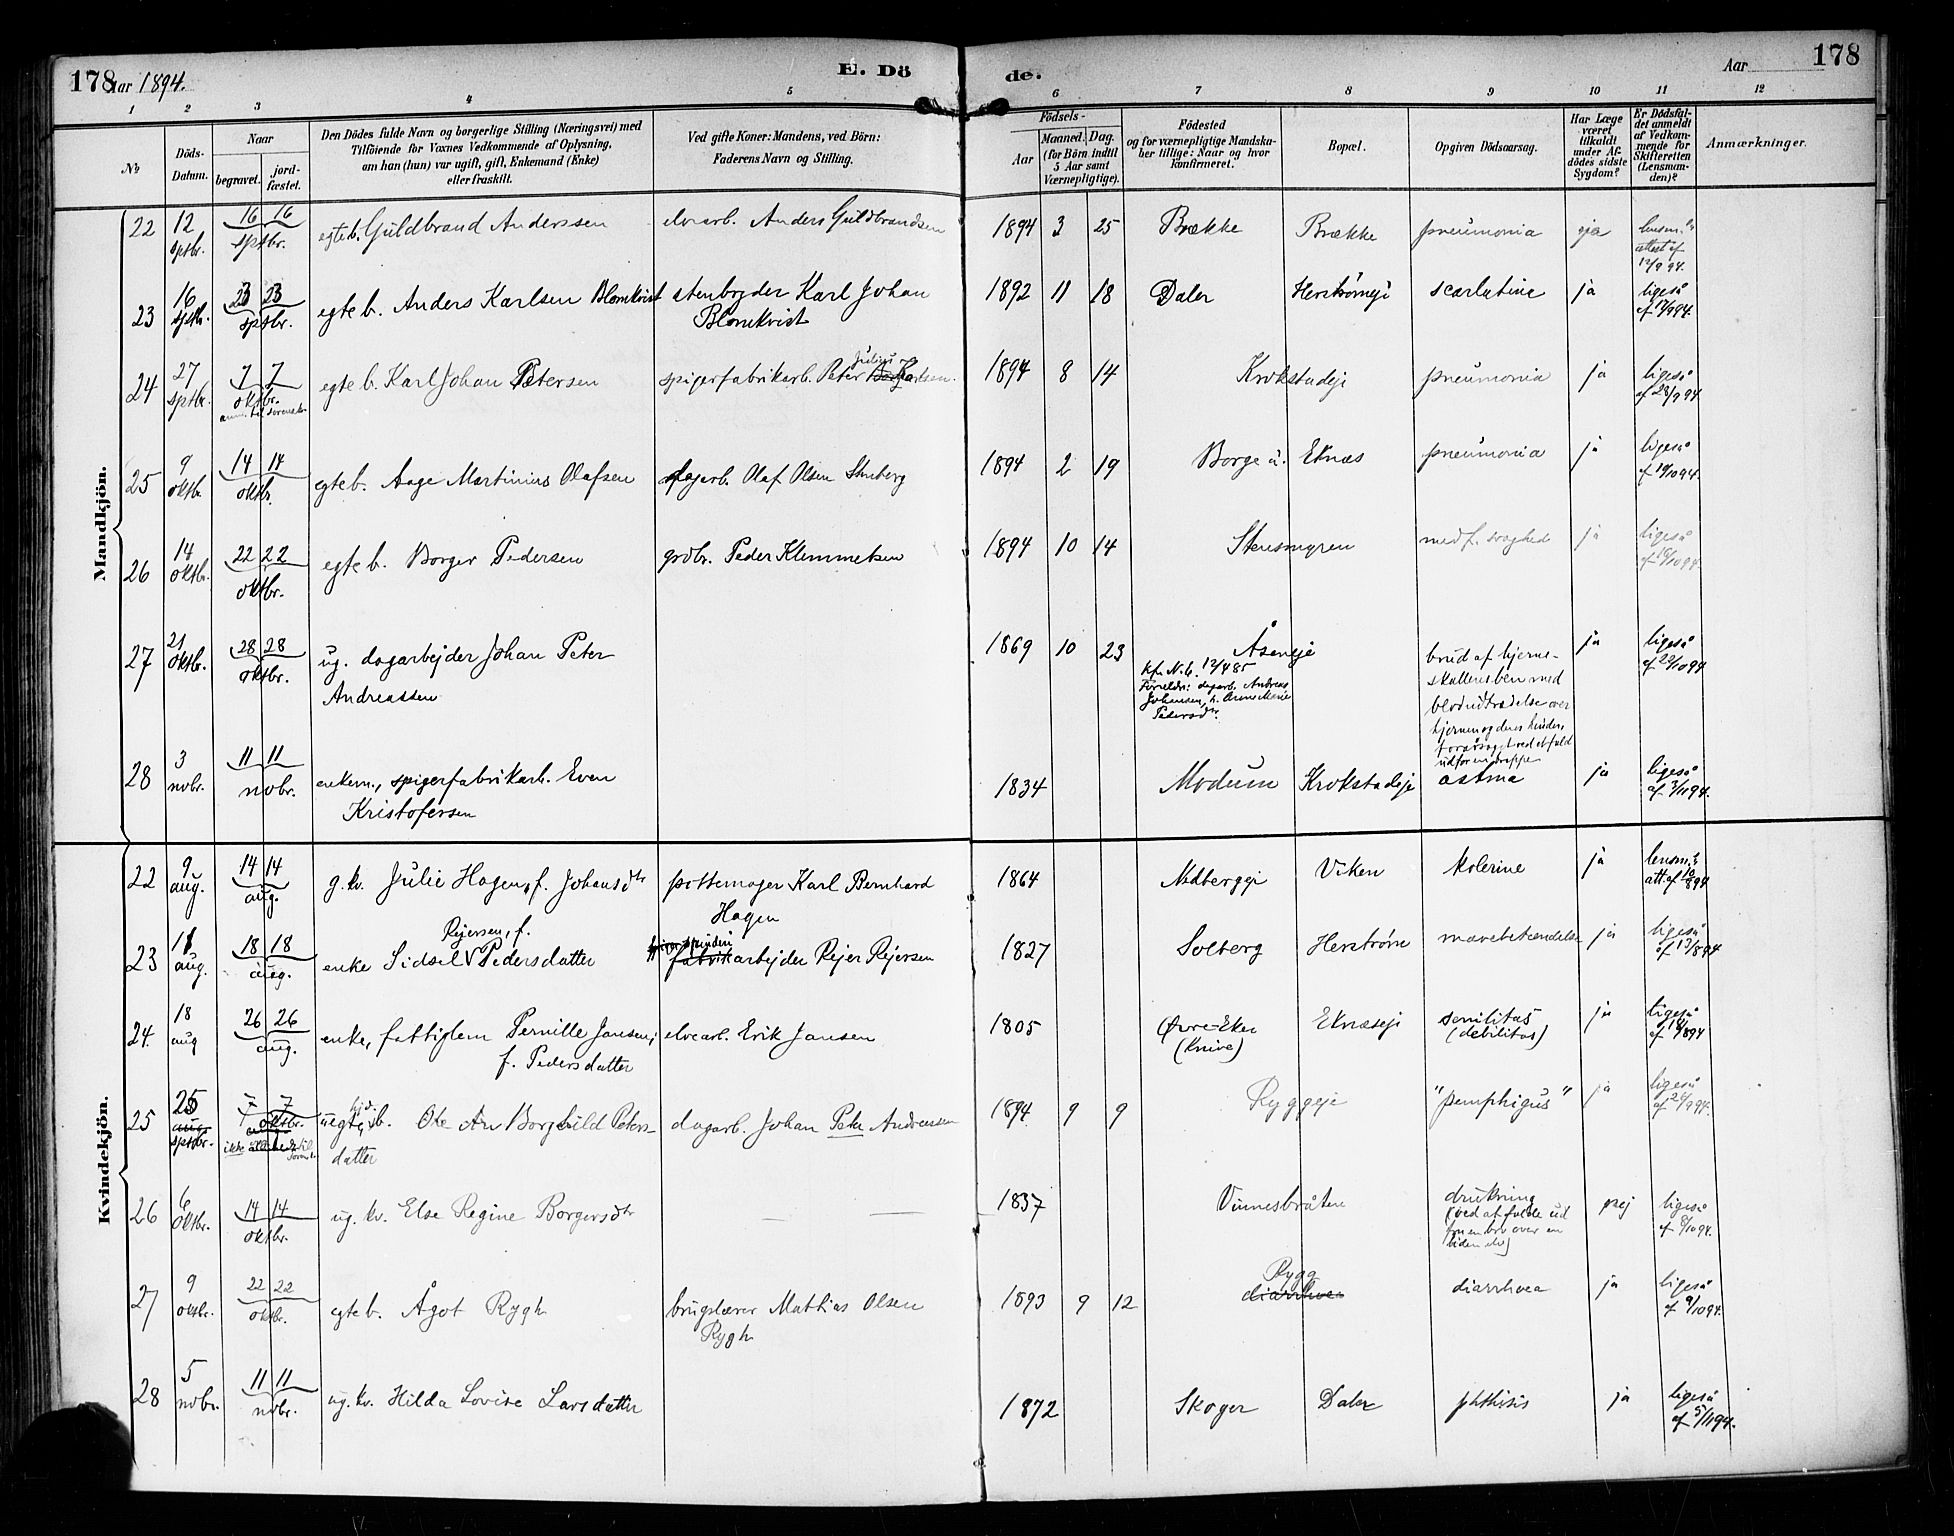 178 Aar 1894. E. Dö de. Aar 178
1 2 3 4 5 6 7 8 9 10 11 12
No
Döds-Datum.
Naar
begravet. jord-fæstet.
Den Dödes fulde Navn og borgerlige Stilling (Næringsvei) med
Tilföiende for Voxnes Vedkommende af Oplysning,
om han (hun) var ugift, gift, Enkemand (Enke)
eller fraskilt.
Ved gifte Koner: Mandens, ved Börn:
Faderens Navn og Stilling.
Födsels-
Aar Maaned. Dag.
(for Börn indtil
5 Aar samt
Værnepligtige).
Födested
og for værnepligtige Mandska-
ber tillige: Naar og hvor
konfirmeret.
Bopæl.
Opgiven Dödsaarsag.
Har Læge
været
tilkaldt
under Af-
dödes sidste
Sygdom?
Er Dödsfal-
det anmeldt
af Vedkom-
mende for
Skifteretten
(Lensman-
den)?
Anmærkninger.
Mandkjön.
22 12 sptbr. 16 16 sptbr. egte b. Guldbrand Anderssen elvearb. Anders Guldbrandsen 1894 3 25 Brække Brække pneumonia ja lensm.s attest af 12/9 94.
23 16 sptbr. 23 23 sptbr. egte b. Anders Karlsen Blomkvist stenbryder Karl Johan
Blomkvist 1892 11 18 Daler Herstrømeje scarlatina ja ligeså af 17/9 94.
24 27 sptbr. 7 7 oktbr. egte b. Karl Johan Petersen spigerfabrikarb. Peter Julius Karlsen. 1894 8 14 Krokstadeje pneumonia ja ligeså af 28/9 94
25 9 oktbr. 14 14 oktbr. egte b. Aage Martinius Olafsen dagarb. Olaf Olsen Stuberg 1894 2 19 Borge u. Eknæs pneumonia ja ligeså af 10/10 94.
26 14 oktbr. 22 22 oktbr. egte b. Borger Pedersen grdbr. Peder Klemmetsen 1894 10 14 Stensmyren medf. svaghed ja ligeså af 16/10 94.
27 21 oktbr. 28 28 oktbr. ug. dagarbejder Johan Peter
Andreassen 1869 10 23 Åseneje
kfm. N. E. 12/4 85
Foreldre: dagarb. Andreas
Johansen, h. Anne Marie
Pedersdr.
brud af hjerne-
skallens ben med
blodudtrædelse over
hjernen og dens hinder,
forårsaget ved et fald
udfor en trappe ja ligeså af 22/10 94
28 3 nobr. 11 11 nobr. enkem., spigerfabrikarb. Even
Kristofersen 1834 Modum Krokstadeje astma ja ligeså af 3/11 94.
Kvindekjön.
22 9 aug. 14 14 aug. g. kv. Julie Hagen, f. Johansdtr pottemager Karl Bernhard
Hagen 1864 Nedbergeje Viken kolerine ja lensm.s att. af 10/8 94
23 11 aug. 18 18 aug. enke Sidsel Rejersen, f. Pedersdatter fabrikarbejder Rejer Rejersen 1827 Solberg Herstrøm mavebetændelse ja ligeså af 13/8 94
24. 18 aug 26 26 aug. enke, fattiglem Pernille Jansen,
f. Pedersdatter elvearb. Erik Jansen 1805 Øvre-Eker
(Knive) Eknæseje senilitas
(debilitas) ja ligeså af 19/8 94
25 25 sptbr. 7 7 oktbr. uegte b. Borghild Peters-
datter dagarb. Johan Peter Andreassen 1894 9 9 Ryggeje "pemphigus" ja ligeså af 26/9 94.
26 6 oktbr. 14 14 oktbr. ug. kv. Else Regine Borgersdtr 1837 Vinnesbråten drukning
(ved at falde ud
fra en bro over en
liden elv) nej ligeså af 8/10 94.
27 9 oktbr. 22 22 oktbr. egte b. Ågot Rygh brugslærer Mathias Olsen
Rygh 1893 9 12 Rygg
diarrhoea diarrhoea ja ligeså af 9/10 94.
28 5 nobr. 11 11 nobr. ug. kv. Hilda Lovise Larsdatter 1872 Skoger Daler phthisis ja ligeså af 5/11 94.